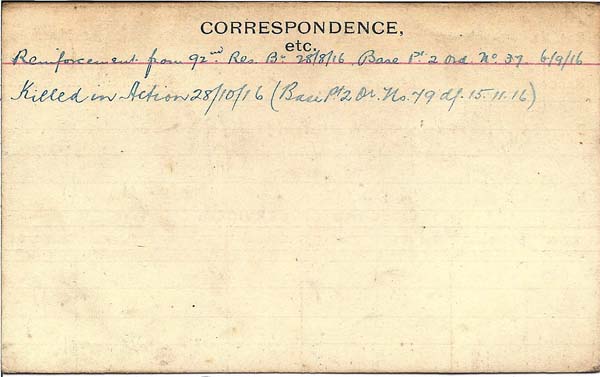 CORRESPONDENCE,
etc.
Reinforcement from 92nd Res. Bn 28/8/16. Base Pt 2 Ord. No 37. 6/9/16
Killed in Action 28/10/16 (Base Pt 2 Or. No. 79 df. 15.11.16)